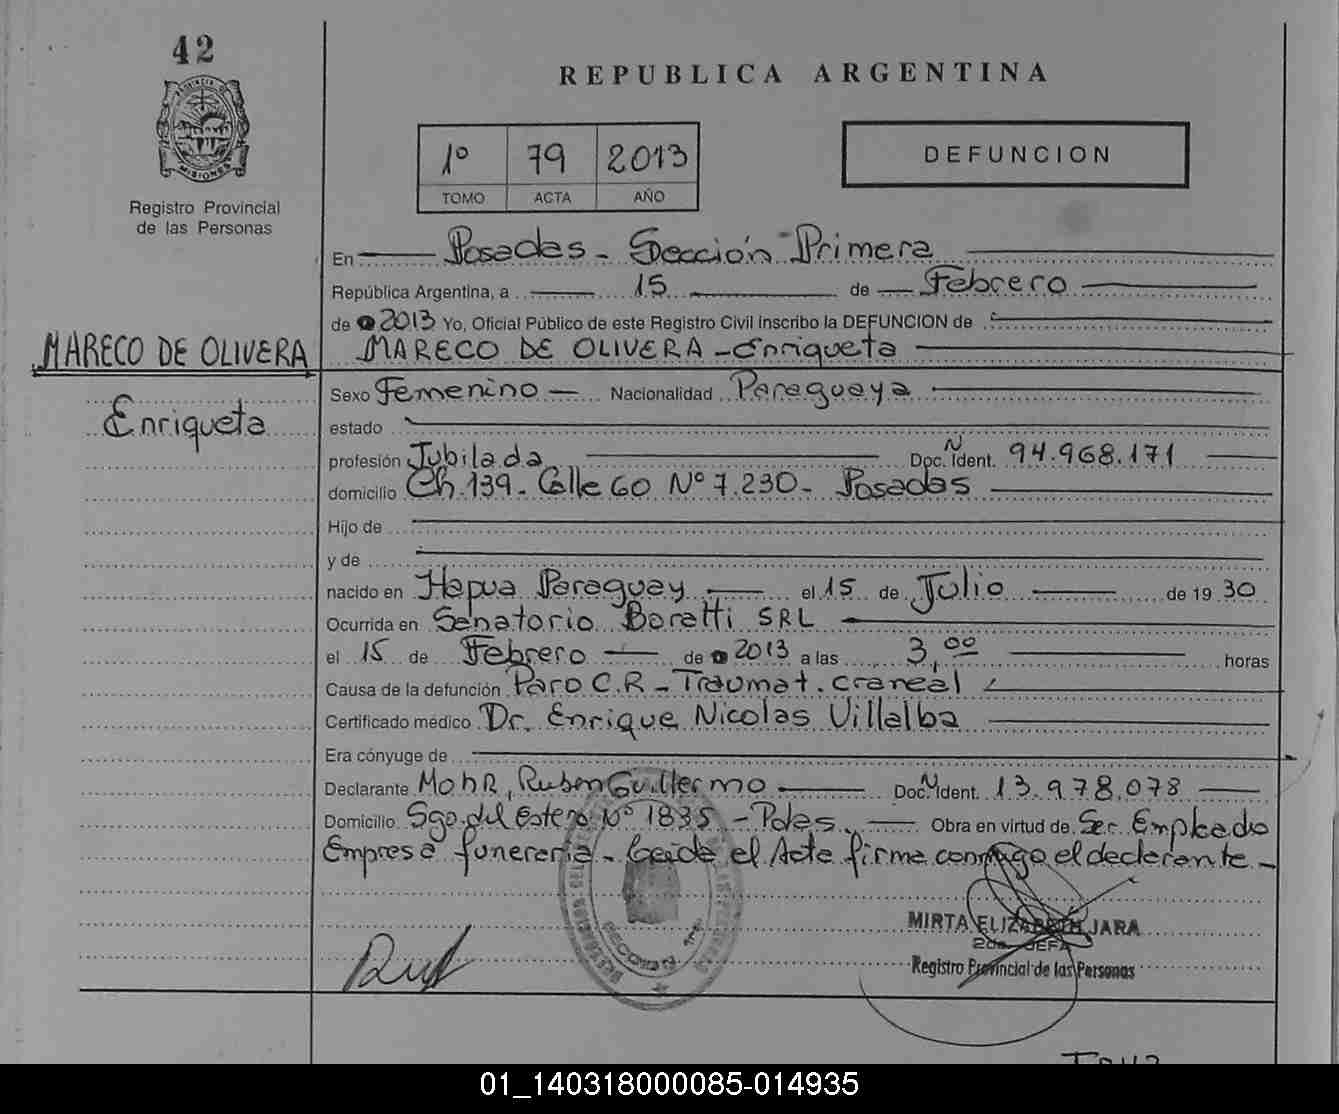 42
REPUBLICA ARGENTINA
MISIONES
Registro Provincial
de las Personas
1º 79 2013
TOMO ACTA AÑO
DEFUNCION
En Posadas - Sección Primera
República Argentina, a 15 de Febrero
de 2013 Yo, Oficial Público de este Registro Civil inscribo la DEFUNCION de
MARECO DE OLIVERA MARECO DE OLIVERA - Enriqueta
Enriqueta
Sexo Femenino - Nacionalidad Paraguaya
estado
profesión Jubilada Doc. N Ident. 94.968.171
domicilio Ch. 139 - Calle 60 Nº 7.230 - Posadas
Hijo de
y de
nacido en Itapua Paraguay el 15 de Julio de 19 30
Ocurrida en Sanatorio Boratti SRL
el 15 de Febrero de 2013 a las 3,00 horas
Causa de la defunción Paro C.R - Traumat. craneal
Certificado médico Dr. Enrique Nicolas Villalba
Era cónyuge de
Declarante Mohr, Ruben Guillermo Doc. N Ident. 13.978.078
Domicilio Sgo. del Estero Nº 1835 - Pdas. Obra en virtud de Ser Empleado
Empresa funeraria - Leida el Acta firma conmigo el declarante -
MIRTA ELIZABETH JARA
2da. JEFA
Registro Provincial de las Personas
01_140318000085-014935